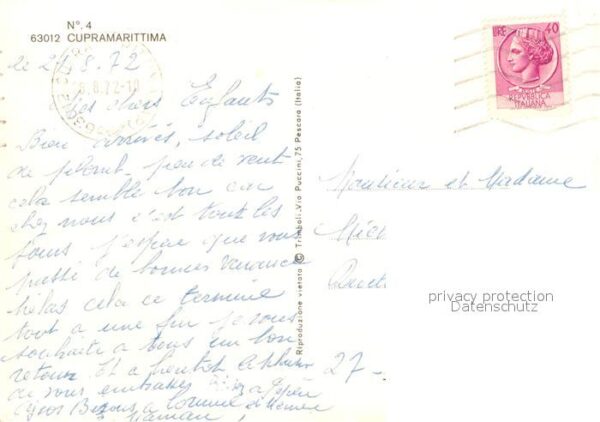 N°. 4
63012 CUPRAMARITTIMA
le 2/8.72
chers Enfants
Bien arrivés, soleil
de plomb, peu de vent
cela semble bon car
chez nous c'est tout les
jours j'espère que vous
passé de bonnes vacances
hélas cela ce termine
tout a une fin je vous
souhaite a tous un bon
retour Et a bientot
de vous embrasser
Gros Bisous a
Maman
LIRE 40
REPVBBLICA
ITALIANA
Riproduzione vietata © Trimboli. Via Puccini, 75 Pescara (Italia)
Monsieur et Madame
27-
privacy protection
Datenschutz